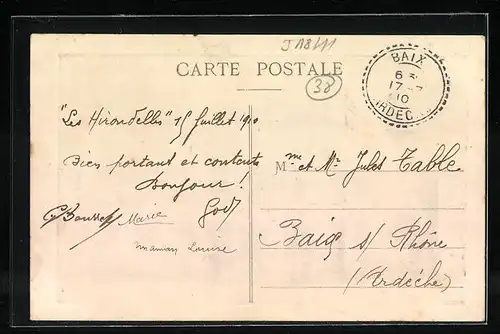 J 18411
CARTE POSTALE
38
BAIX
6
17 - 7
10
ARDECHE
"Les Hirondelles" 15 Juillet 1910
Bien portant et contents
Bonjour!
God
Marie
maman Louise
Mme et Mr Jules Table
Baix s/ Rhône
(Ardèche)